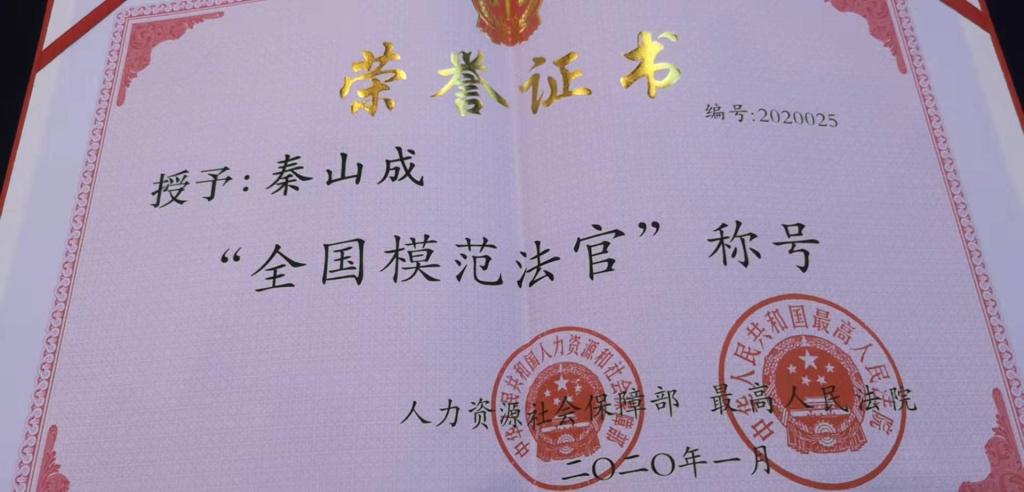 荣誉证书
编号:2020025
授予:秦山成
“全国模范法官”称号
人力资源社会保障部 最高人民法院
二〇二〇年一月
中华人民共和国人力资源和社会保障部
中华人民共和国最高人民法院